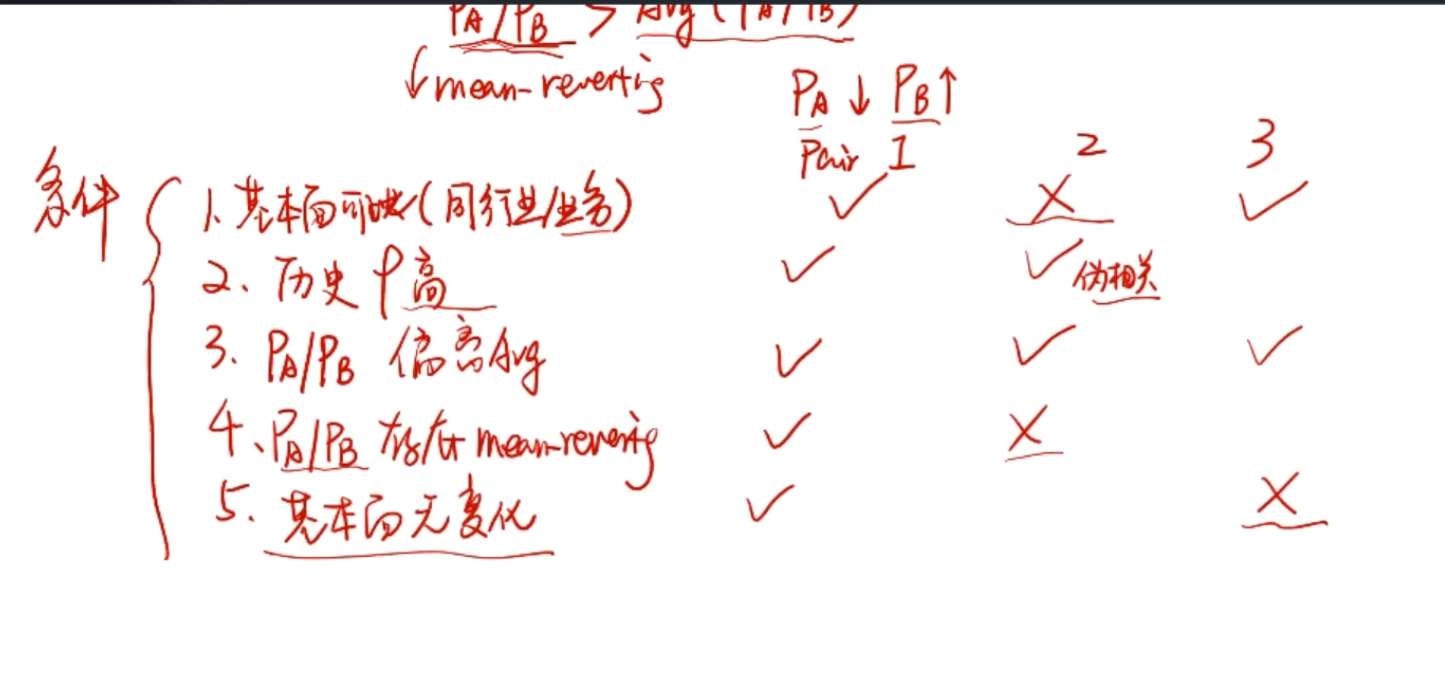 PA/PB > Avg (PA/PB)
↓ mean-revertig
PA ↓ PB ↑
Pair 1 2 3
条件
1. 基本面可比 (同行业/业务) ✓ X ✓
2、历史 ρ 高 ✓ ✓ 伪相关
3. PA/PB 偏离 Avg ✓ ✓ ✓
4、PA/PB 存在 mean-revertig ✓ X
5. 基本面无变化 ✓ X